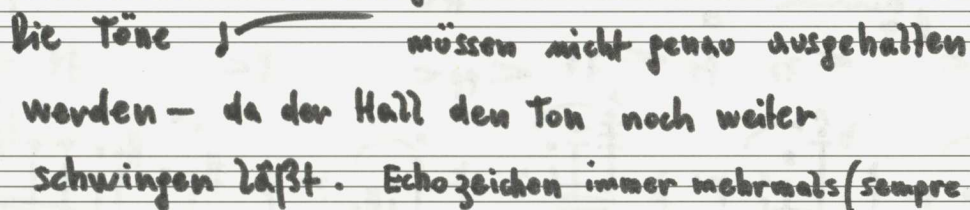 Die Töne müssen nicht genau ausgehalten
werden – da der Hall den Ton noch weiter
schwingen läßt. Echozeichen immer mehrmals (sempre